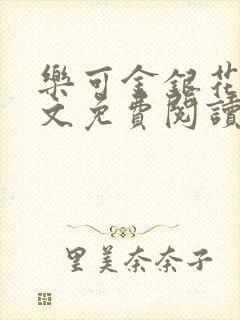 樂可金銀花
文免費閱讀
里美奈奈子